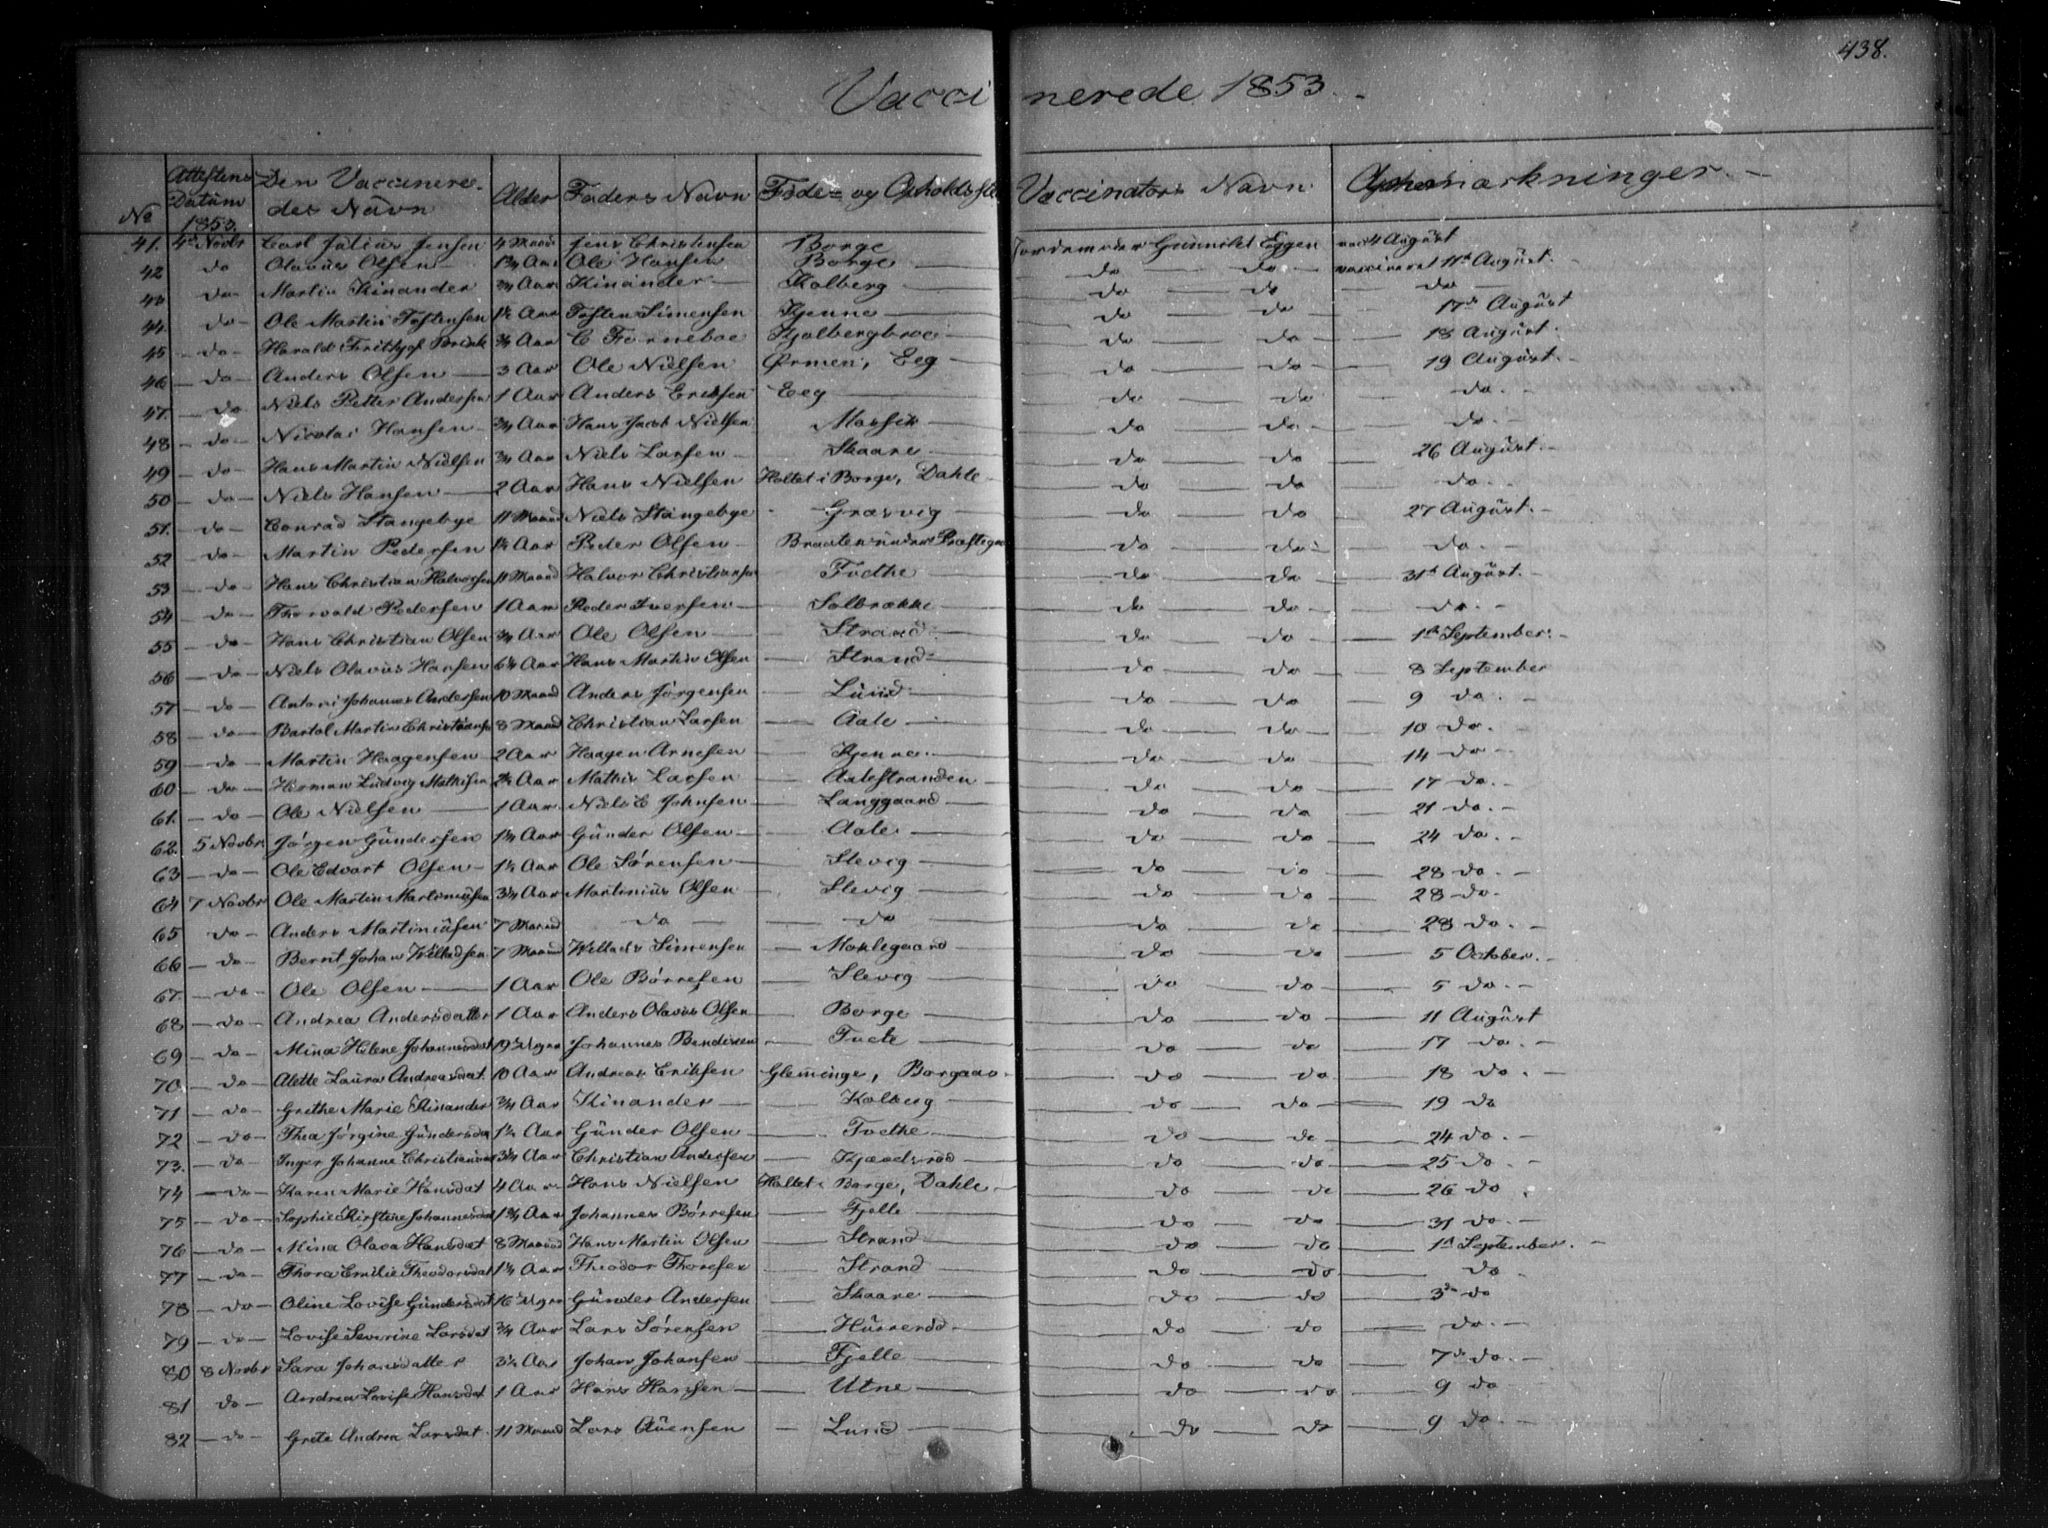 438.
Vaccinerede 1853.
No Attestens Datum 1853. Den Vaccineredes Navn Alder Faders Navn Føde- og Opholdsste Vaccinators Navn Anmærkninger
41. 4de Novbr Carl Julius Jensen 4 Maan Jens Christensen Borge Jordemoder Gunnild Eggen vac 4 August
42 do Olavus Olsen 1¾ Aar Ole Hansen Borge do do vaccineret 11te August.
43 do Martin Kinander ¾ Aar Kinander Kolberg do do do
44. do Ole Martin Tostensen 1½ Aar Tosten Simensen Kjenne do do 17de August
45 do Harald Frithjof Brink ¾ Aar C Forneboe Kjølbergbroe do do 18 August.
46 do Anders Olsen 3 Aar Ole Nielsen Ørmen, Eeg do do 19 August.
47. do Niels Petter Andersen 1 Aar Anders Eriksen Eeg do do do.
48 do Nicolai Hansen ¾ Aar Hans Jacob Nielsen do do do.
49 do Hans Martin Nielsen ¾ Aar Niels Larsen Skaare do do 26 August.
50 do Niels Hansen 2 Aar Hans Nielsen Holtet i Borge, Dahle do do do.
51. do Conrad Stangebye 11 Maaned Niels Stangebye Græsvig do do 27 August.
52 do Martin Pedersen 1½ Aar Peder Olsen Braaten under Præstegr do do do.
53 do Hans Christian Halvorsen 11 Maaned Halvor Christiansen Tvethe do do 31te August.
54 do Thorvald Pedersen 1 Aar Peder Iversen Solbrække do do do.
55 do Hans Christian Olsen ¾ Aar Ole Olsen Strand do do 1te September.
56 do Niels Olavus Hansen 6½ Aar Hans Martin Olsen Strand do do 8 September
57 do Antoni Johannes Andersen 10 Maaned Anders Jørgensen Lund do do 9 do.
58 do Bartol Martin Christiansen 8 Maaned Christian Larsen Aale do do 10 do.
59 do Martin Haagensen 2 Aar Haagen Arnesen Kjenne do do 14 do
60 do Herman Ludvig Mathisen 2½ Aar Mathis Larsen Aalestranden do do 17 do.
61. do Ole Nielsen 1 Aar Niels C Johnsen Langgaard do do 21 do.
62. 5 Novbr Jørgen Gundersen 1¾ Aar Gunder Olsen Aale do do 24 do.
63 do Ole Edvart Olsen 1½ Aar Ole Sørensen Slevig do do 28 do.
64 7 Novbr Ole Martin Martiniusen 3¾ Aar Martinius Olsen Slevig do do 28 do.
65 do Anders Martiniusen 7 Maaned do do do do 28 do.
66 do Bernt Johan Willadsen 7 Maaned Willads Simensen Moklegaard do do 5 October.
67. do Ole Olsen 1 Aar Ole Børresen Slevig do do 5 do.
68 do Andrea Andersdatter 1 Aar Anders Olavus Olsen Borge do do 11 August
69 do Mina Helene Johannesdat 19 Uger Johannes Bendixen Tvete do do 17 do.
70. do Alette Laura Andreasdat. 10 Aar Andreas Eriksen Glemminge, Borgaas do do 18 do.
71 do Grethe Marie Kinander ¾ Aar Kinander Kolberg do do 19 do
72 do Thea Jørgine Gundersdat 1½ Aar Gunder Olsen Tvethe do do 24 do.
73. do Inger Johanne Christiansdat 3¾ Aar Christian Andersen Kjændsrød do do 25 do.
74 do Karen Marie Hansdat 4 Aar Hans Nielsen Holtet i Borge, Dahle do do 26 do.
75 do Sophie Kirstine Johannesdat 1¾ Aar Johannes Børresen Fjelle do do 31 do.
76 do Mina Olava Hansdat 8 Maaned Hans Martin Olsen Strand do do 1te September.
77 do Thora Emilie Theodorsdat 1½ Aar Theodor Thoresen Strand do do do
78 do Oline Lovise Gundersdat 16 Uger Gunder Andersen Skaare do do 3de do
79 do Lovise Severine Larsdat ¾ Aar Lars Sørensen Hunnerød do do do.
80 8 Novbr Sara Johansdatter 3½ Aar Johan Johansen Fjelle do do 7de do.
81 do Andrea Lovise Hansdat 1 Aar Hans Hansen Utne do do 9 do
82 do Grete Andrea Larsdat. 11 Maaned Lars Auensen Lund do do 9 do.